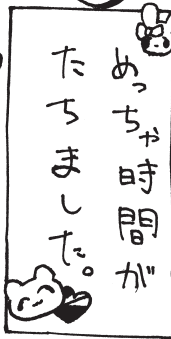 めっちゃ時間が
たちました。